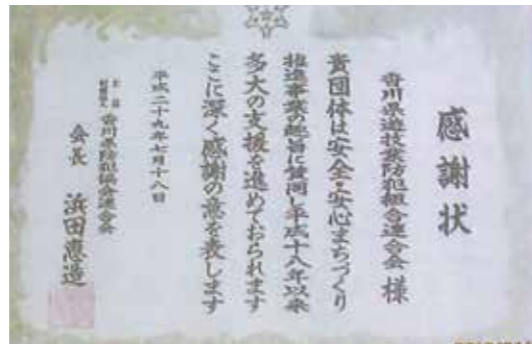 感謝状
香川県遊技業防犯組合連合会 様
貴団体は安全・安心まちづくり
推進事業の趣旨に賛同し平成十八年以来
多大の支援を進めておられます
ここに深く感謝の意を表します
平成二十九年七月十八日
香川県防犯組合連合会
会長 浜田恵造